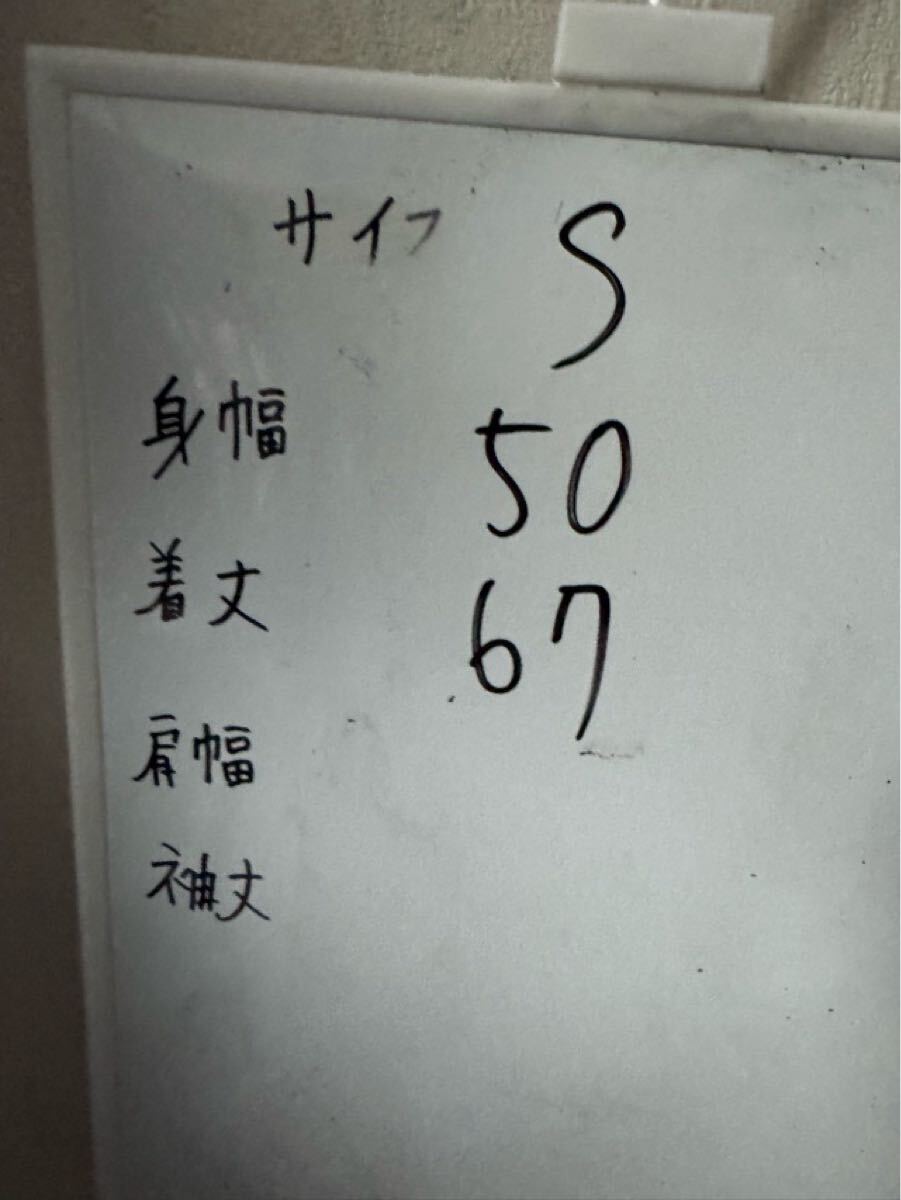 サイフ S
身幅 50
着丈 67
肩幅
袖丈